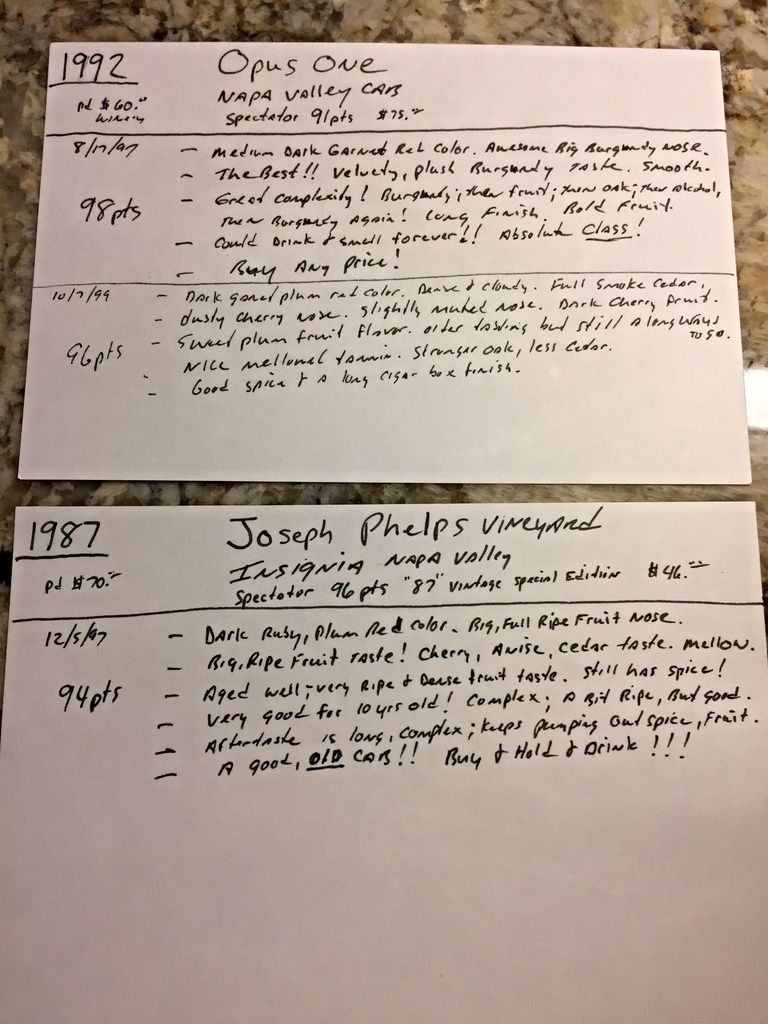 1992 Opus One
pd $60.00 NAPA Valley CAB
Winery Spectator 91pts $75.00
8/17/97 - Medium Dark Garnet Red Color. Awesome Big Burgundy Nose.
- The Best!! Velvety, plush Burgundy Taste. Smooth.
98pts - Great Complexity! Burgundy; then fruit; then oak; then Alcohol,
then Burgundy Again! Long Finish. Bold Fruit.
- Could Drink & smell forever!! Absolute Class!
- Buy Any Price!
10/7/99 - Dark garnet plum red color. Dense & cloudy. Full Smoke Cedar,
- dusty cherry nose. slightly muted nose. Dark Cherry Fruit.
96pts - Sweet plum fruit flavor. older tasting but still a long ways to go.
Nice mellowed tannin. Stronger oak, less Cedar.
- Good spice & a long cigar box finish.
1987 Joseph Phelps Vineyard
INSIGNIA NAPA Valley
pd $70.00 Spectator 96pts "87" Vintage Special Edition $46.00
12/5/97 - Dark Ruby, Plum Red Color. Big, Full Ripe Fruit Nose.
- Big, Ripe Fruit Taste! Cherry, Anise, Cedar taste. Mellow.
94pts - Aged well; very Ripe & Dense fruit taste. Still has spice!
- Very good for 10 yrs old! Complex; A Bit Ripe, But good.
- Aftertaste is long, complex; keeps pumping out spice, Fruit.
- A good, OLD CAB!! Buy & Hold & Drink!!!